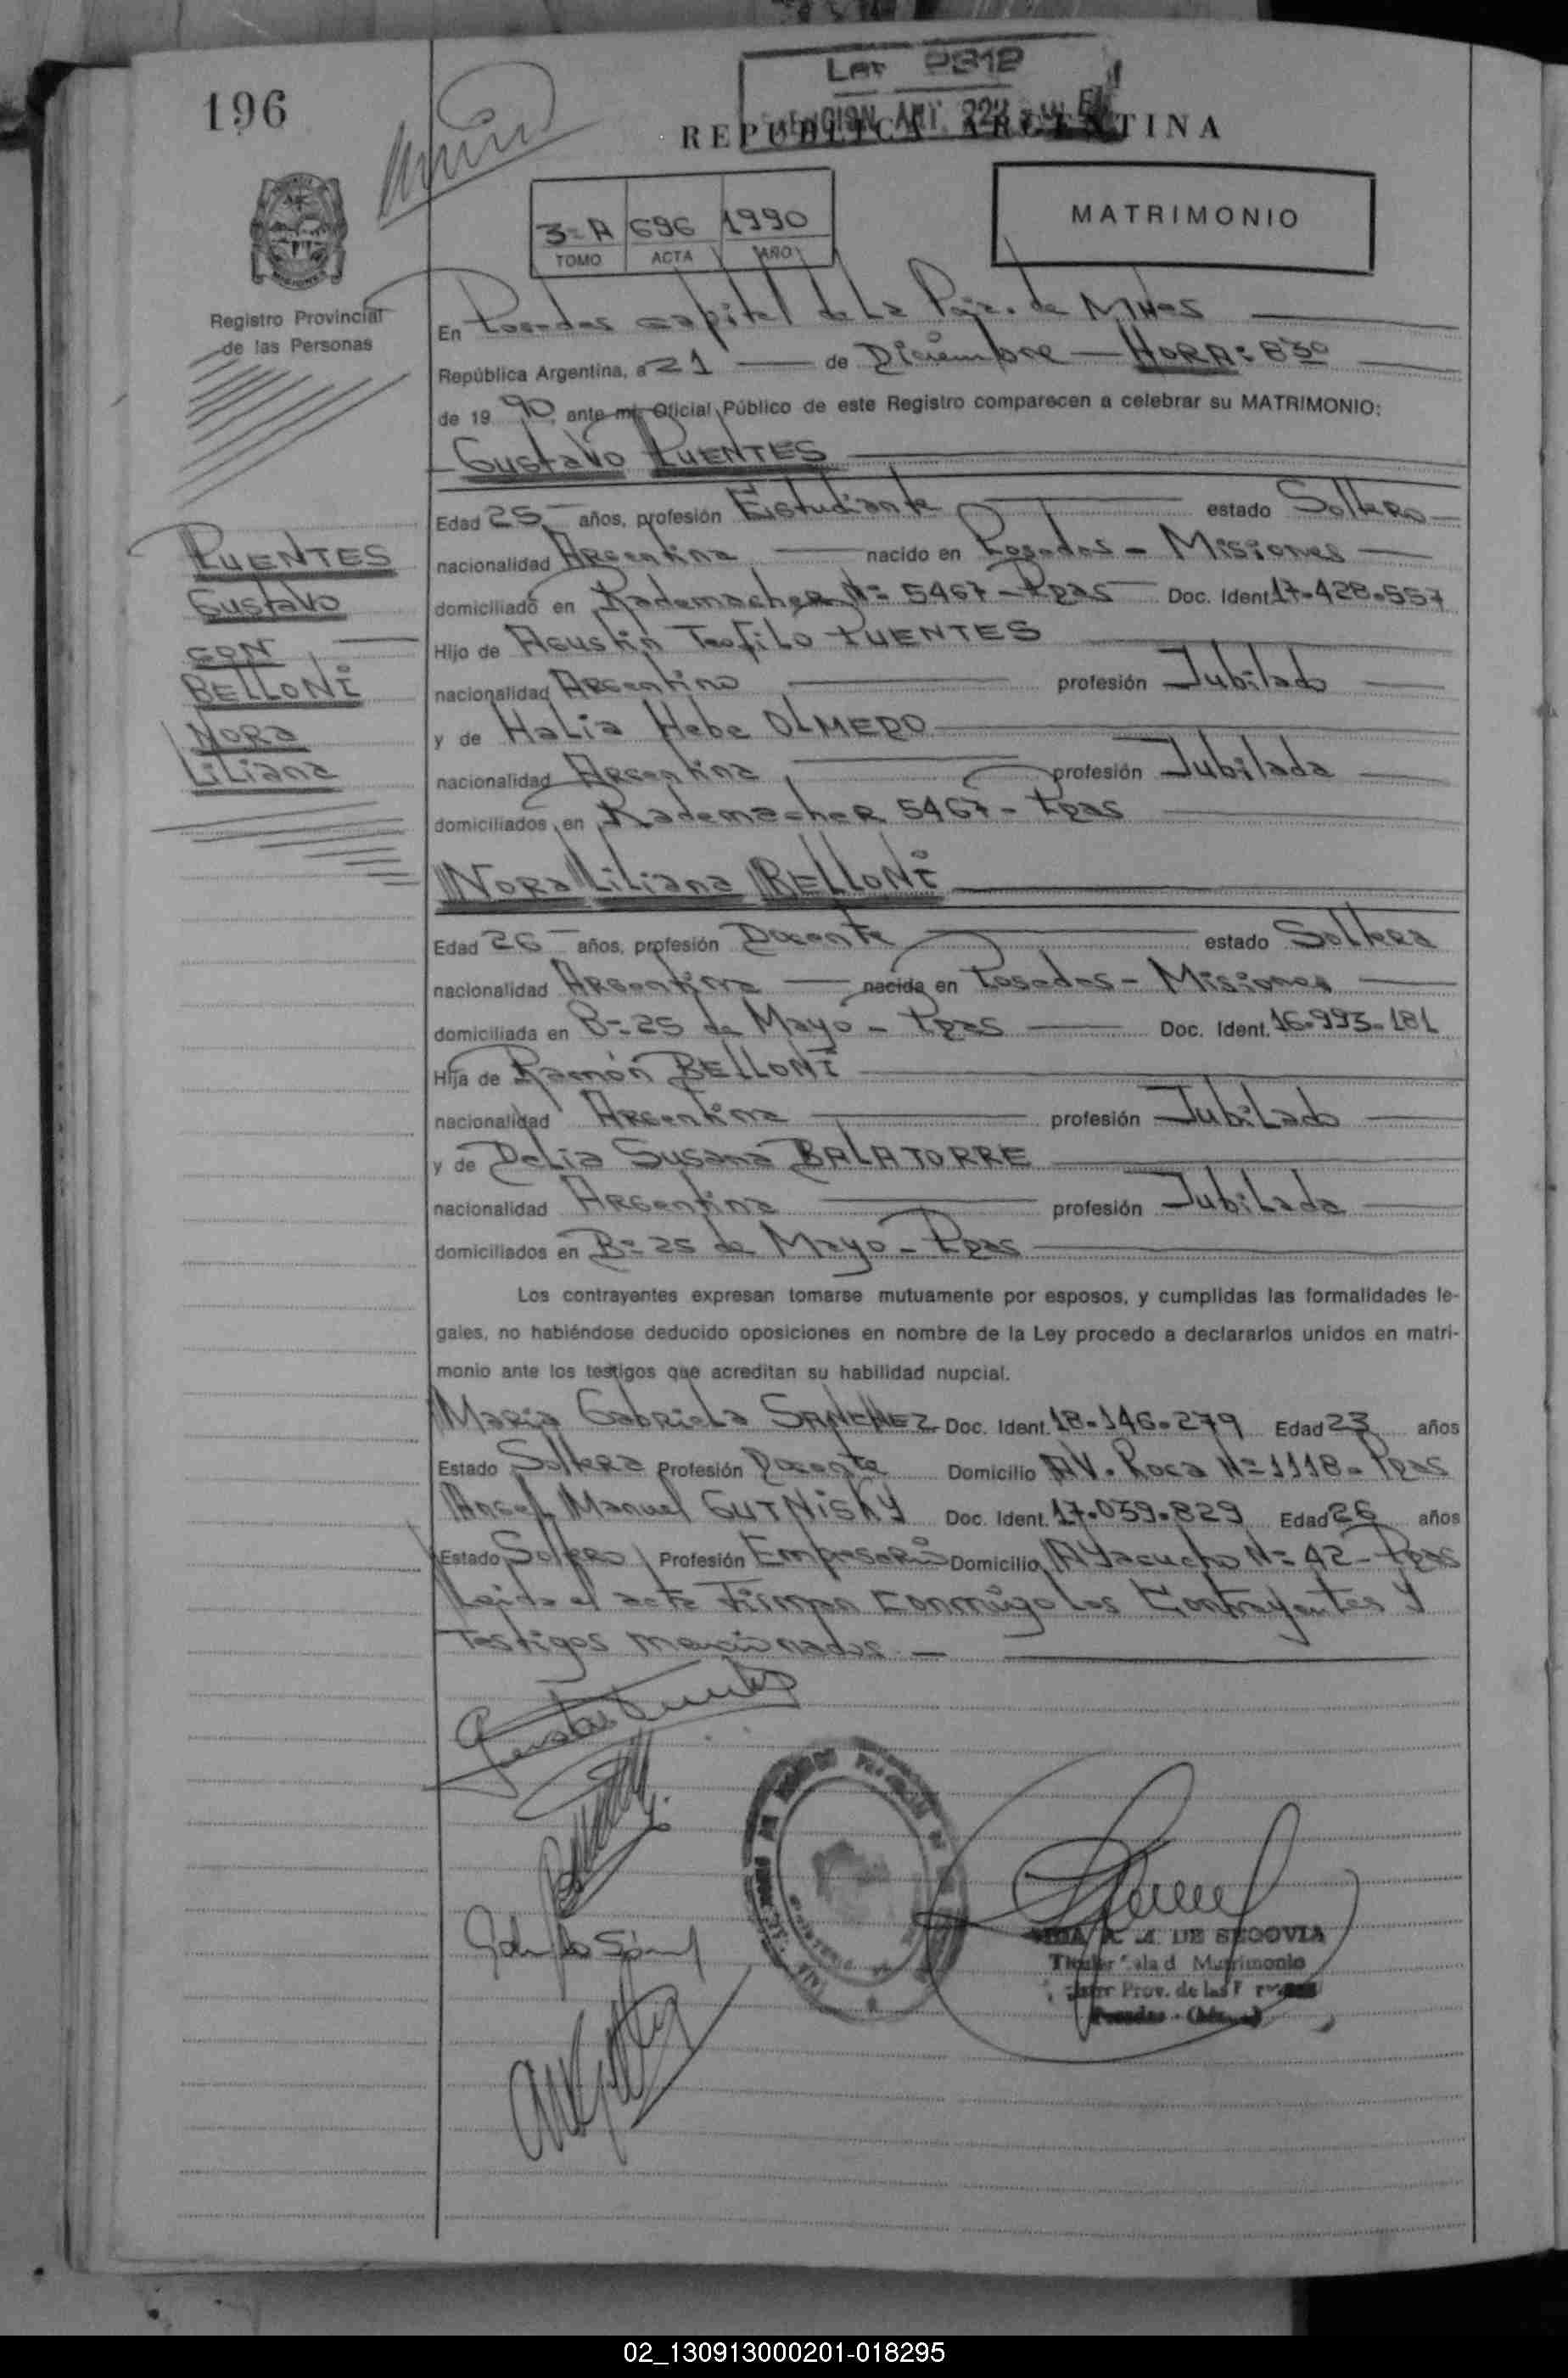 196
LEY 2312
REPUBLICA ARGENTINA
3=A 696 1990
TOMO ACTA AÑO
MATRIMONIO
Registro Provincial
de las Personas
En Posadas capital de la Pcia. de Mnes
República Argentina, a 21 de Diciembre HORA: 830
de 19 90, ante mi, Oficial Público de este Registro comparecen a celebrar su MATRIMONIO:
Gustavo PUENTES
Edad 25 años, profesión Estudiante estado Soltero
nacionalidad Argentina nacido en Posadas - Misiones
domiciliado en Rademacher N= 5467 - Ppas Doc. Ident. 17.428.557
Hijo de Agustin Teofilo PUENTES
nacionalidad Argentino profesión Jubilado
y de Halia Hebe OLMEDO
nacionalidad Argentina profesión Jubilada
domiciliados en Rademacher 5467 - Ppas
PUENTES
Gustavo
CON
BELLONI
Nora
Liliana
Nora Liliana BELLONI
Edad 26 años, profesión Docente estado Soltera
nacionalidad Argentina nacida en Posadas - Misiones
domiciliada en B= 25 de Mayo - Ppas Doc. Ident. 16.993.181
Hija de Ramón BELLONI
nacionalidad Argentina profesión Jubilado
y de Delia Susana BALATORRE
nacionalidad Argentina profesión Jubilada
domiciliados en B= 25 de Mayo - Ppas
Los contrayentes expresan tomarse mutuamente por esposos, y cumplidas las formalidades le-
gales, no habiéndose deducido oposiciones en nombre de la Ley procedo a declararlos unidos en matri-
monio ante los testigos que acreditan su habilidad nupcial.
Maria Gabriela SANCHEZ Doc. Ident. 18.146.279 Edad 23 años
Estado Soltera Profesión Docente Domicilio AV. Roca N= 1118 - Ppas
Angel Manuel GUTNISKY Doc. Ident. 17.039.829 Edad 26 años
Estado Soltero Profesión Empresario Domicilio Ayacucho N= 42 - Ppas
Leida el acta Firman Conmigo los Contrayentes y
Testigos mencionados.
DE SEGOVIA
Matrimonio
Prov. de las
Posadas
02_130913000201-018295